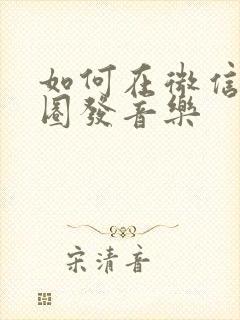 如何在微信
圈發音樂
宋清音